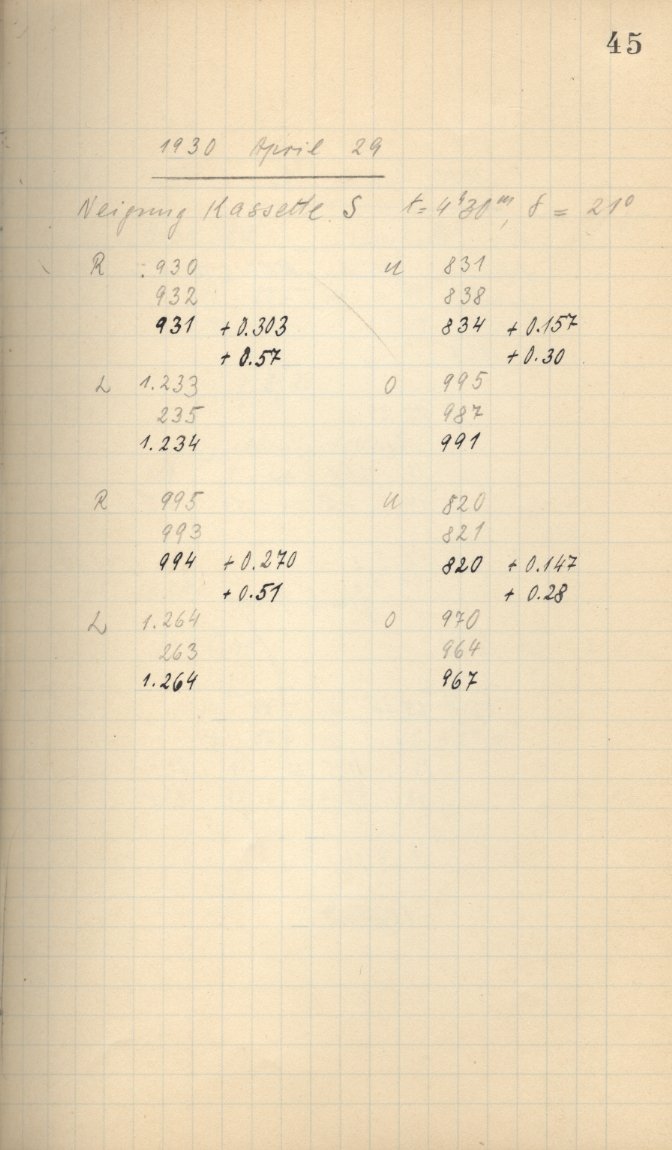 45
1930 April 29
Neigung Kassette S t = 4ʰ30ᵐ, δ = 21°
R .930 U 831
932 838
931 +0.303 834 +0.157
+0.57 +0.30
L 1.233 O 995
235 987
1.234 991
R 995 U 820
993 821
994 +0.270 820 +0.147
+0.51 +0.28
L 1.264 O 970
263 964
1.264 967